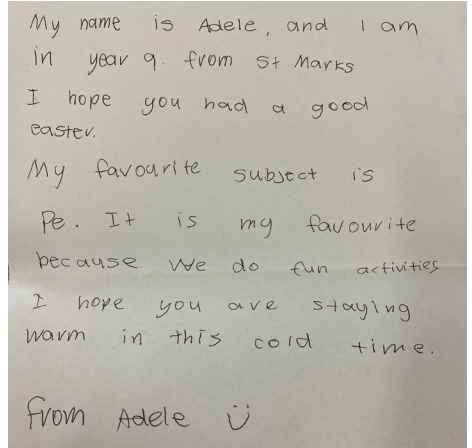 My name is Adele, and I am
in year 9. from St Marks
I hope you had a good
easter.
My favourite subject is
Pe. It is my favourite
because we do fun activities
I hope you are staying
warm in this cold time.
from Adele Ü